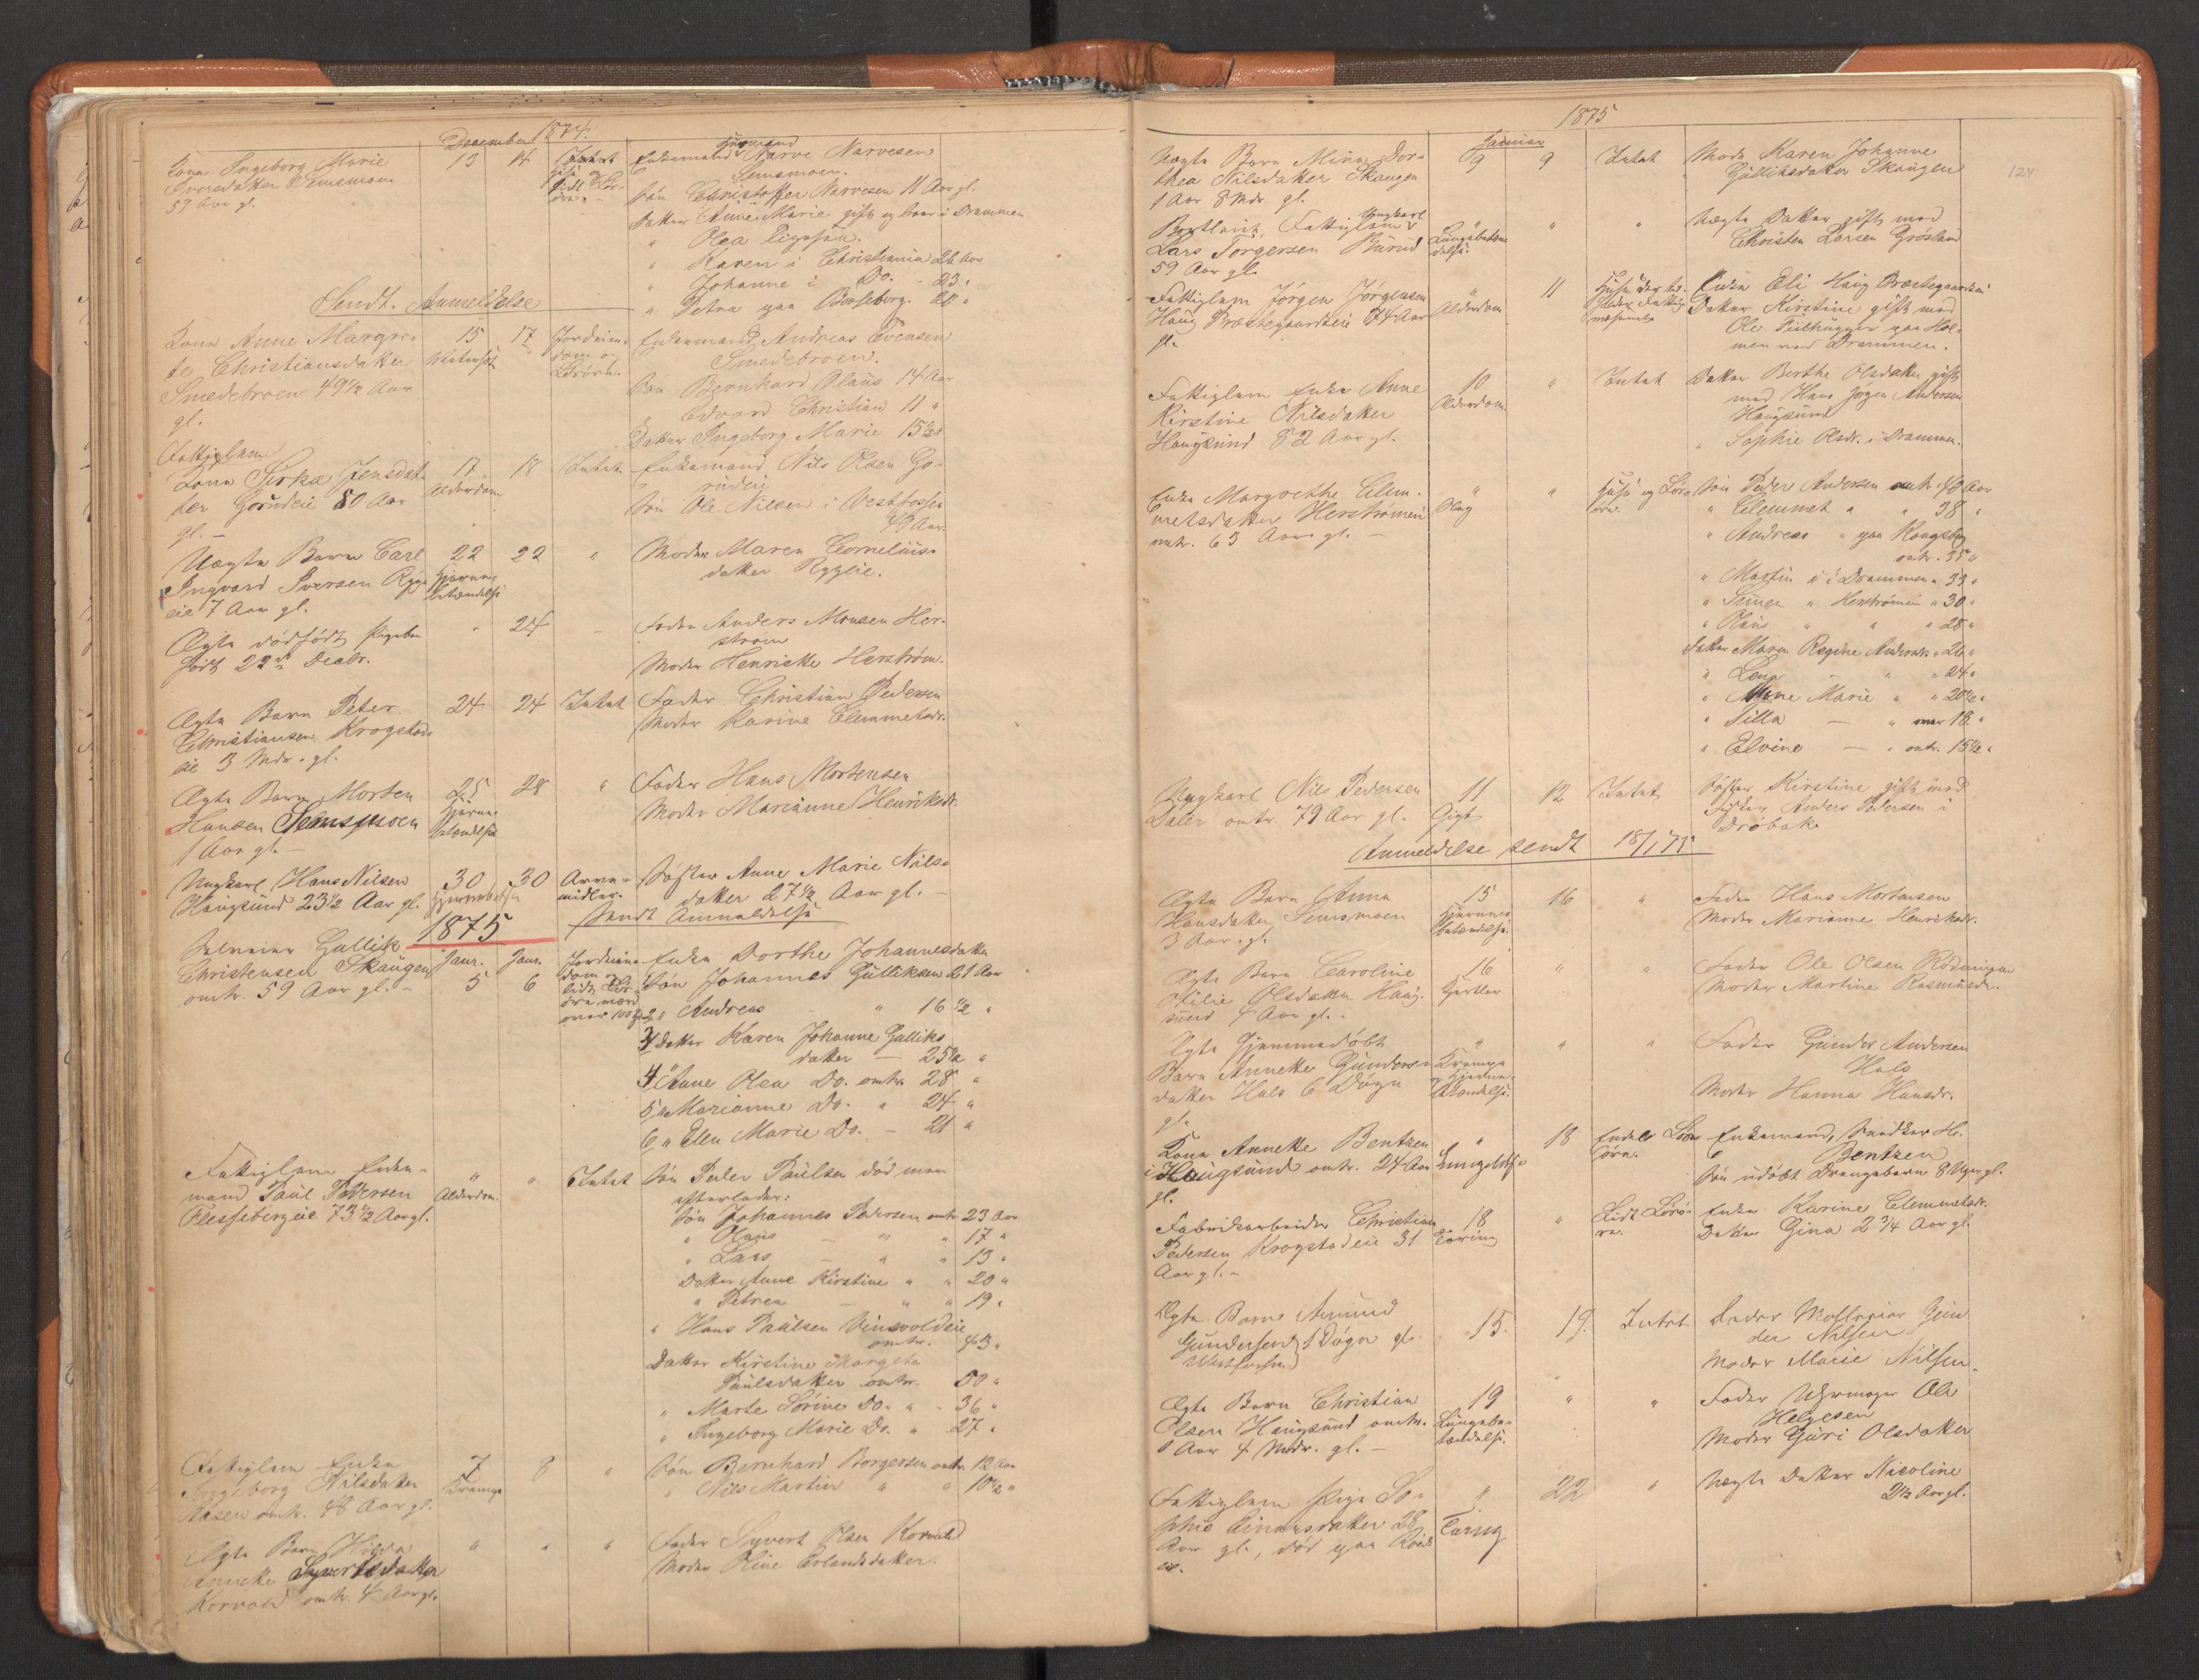 1874.
December
Kone Ingeborg Marie 13 14 Intet Enkemand Husmand Narve Narvesen
Iversdatter Semsmoen Huus og Semsmoen.
59 Aar gl. lidt Løsøre. Søn Christoffer Narvesen 11 Aar gl.
Datter Anne Marie gift og boer i Drammen
" Olea Pigesen.
" Karen i Christiania 26 Aar
" Johanne i Do. 23 "
" Petra paa Bæsseberg. 20 "
Sendt. Anmeldelse
Kone Anne Margre- 15 17 Jordeien- Enkemand Andreas Evensen
te Christiansdatter dom og Smedebroen.
Smedebroen 49½ Aar Løsøre. Søn Bernhard Olaus 14 Aar
gl. " Edvard Christian 11 "
Datter Ingeborg Marie 15½ "
Fattiglem
Kone Sirka Jensdat- 17 18 Intet Enkemand Nils Olsen Go-
ter Gorudeie 80 Aar Alderdom rudeie
gl. Søn Ole Nilsen i Vestfossen
49 Aar.
Uægte Barn Carl 22 22 " Moder Maren Cornelius-
Ingvard Iversen Ryg- Hjerne- datter Rygeie.
eie 7 Aar gl. betændelse
Ægte dødfødt Pigebn " 24 Fader Anders Monsen Her-
født 22de Decbr. strøm
Moder Henriette Herstrøm.
Ægte Barn Peter 24 24 Intet Fader Christian Pedersen
Christiansen Krogstad- Moder Karine Clemmetsdr.
eie 3 Mdr. gl.
Ægte Barn Morten 25 28 " Fader Hans Mortensen
Hansen Semsmoen Hjerne- Moder Marianne Henriksdr.
1 Aar gl. betændelse
Ungkarl Hans Nilsen 30 30 Arve- Søster Anne Marie Nils-
Haugsund 23½ Aar gl. midler. datter 27½ Aar gl.
1875 Sendt Anmeldelse
Selveier Gullik Janr. Janr. Jordeien- Enke Dorthe Johannesdatter
Christensen Skaugen 5 6 dom og Søn Johannes Gulliksen 21 Aar
omtr. 59 Aar gl. lidt Løs- 2 " Andreas " 16½ "
øre
over 100 3 Datter Karen Johanne Gulliks
datter 25½ "
4 " Anne Olea Do. omtr. 28 "
5 " Marianne Do. " 24 "
6 " Elen Marie Do. 21 "
Fattiglem Enke- " " Intet Søn Peder Paulsen død, men
mand Paul Pedersen Alderdom. efterlader:
Flesseberg eie 73½ Aar gl. Søn Johannes Pedersen omtr 23 Aar
" Olaus " " 17 "
" Lars " " 13 "
Datter Anne Kirstine " " 20 "
" Petrea " " 19 "
" Hans Paulsen Vinsvoldeie
omtr. 43 "
Datter Kirstine Margete
Paulsdatter omtr. 50 "
" Marte Sørine Do. " 36 "
" Ingeborg Marie Do. " 27 "
Fattiglem Enke 7 8 " Søn Bernhard Borgersen omtr. 12 Aar
Ingeborg Nilsdatter Krampe " Nils Martin " " 10½ "
Aasen omtr. 48 Aar gl.
Ægte Barn Hilda " " " Fader Syvert Olsen Korvald
Anneke Syvertsdatter Moder Oline Erlandsdatter.
Korvald omtr. 4 Aar gl.
1875
Januar
124
Uægte Barn Mina Dor- 9 9 Intet Moder Karen Johanne
thea Nilsdatter Skaugen Gulliksdatter Skaugen
1 Aar 8 Mdr. gl.
Fattiglem Ungkarl " " " Uægte Datter gift med
Lars Torgersen Burud Lungebetæn- Christen Larsen Grøsland
59 Aar gl. delse.
Fattiglem Jørgen Jørgensen " 11 Enke Eli Haug Præstegaardseie
Haug Præstegaardseie 74 Aar Alderdom Datter Kirstine gift med
gl. Ole Fiilhugger paa Hol-
men ved Drammen.
Fattiglem Enke Anne 10 " Intet Datter Berthe Olsdatter gift
Kirstine Nilsdatter Alderdom. med Hans Jørgen Andersen
Haugsund 82 Aar gl. Haugsund
" Sophie Olsdr. i Drammen.
Enke Margrethe Clem- " " Huus og Løs- Søn Peder Andersen omtr. 40 Aar
metsdatter Herstrømeie Slag øre. " Clemmet " " 38 "
omtr. 63 Aar gl. " Andreas " paa Kongsberg
omtr. 35 "
" Martin " i Drammen " 33 "
" " Herstrømeie " 30 "
" Olaus " " " 28 "
Datter Maren Regine Andersdr. " 26 "
" Lena " " 24 "
" Anne Marie " " 20½ "
" Silla " over 18 "
" Elvine " omtr. 15½ "
Ungkarl Nils Pedersen 11 12 Intet Søster Kirstine gift med
Dalen omtr. 79 Aar gl. Gigt Fisker Anders Pedersen i
Drøbak.
Anmeldelse sendt 18/1 75
Ægte Barn Anna 15 16 " Fader Hans Mortensen
Hansdatter Semsmoen Hjerne- Moder Marianne Henriksdr.
3 Aar. gl. betændelse.
Ægte Barn Caroline 16 " " Fader Ole Olsen
Otilie Olsdatter Haug- Moder Martine Rasmusdr.
sund 4 Aar gl.
Ægte Hjemmedøbt " " " Fader Gunder Andersen
Barn Annette Gunders- Krampe Hals
datter Hals 6 Døgn Moder Hanna Hansdr.
gl.
Kone Anneke Bentzen " 18 Endel Løs- Enkemand, Snedker H.
i Haugsund omtr. 24 Aar øre. Bentzen
gl. Søn udøbt Drengebarn 8 Uger gl.
Fabrikarbeider Christian 18 " Lidt Løsø- Enke Karine Clemmetsdr.
Pedersen Krogstadeie 31 Tæring re. Datter Gina 2¾ Aar gl.
Aar gl.
Ægte Barn Amund 15. 19. Intet Fader Gun
Gundersen 1 Døgn gl. der Nilsen
Westfossen Moder Marie Nilsen.
Ægte Barn Christian 19 " " Fader Uhrmager Ole
Olsen Haugsund omtr. Lungebe- Helgesen
1 Aar 4 Mdr. gl. tændelse. Moder Guri Olsdatter
Fattiglem Pige So- " 22 " Uægte Datter Nicoline
phie Einarsdatter 28 Tæring 2½ Aar gl.
Aar gl., død paa
eie.